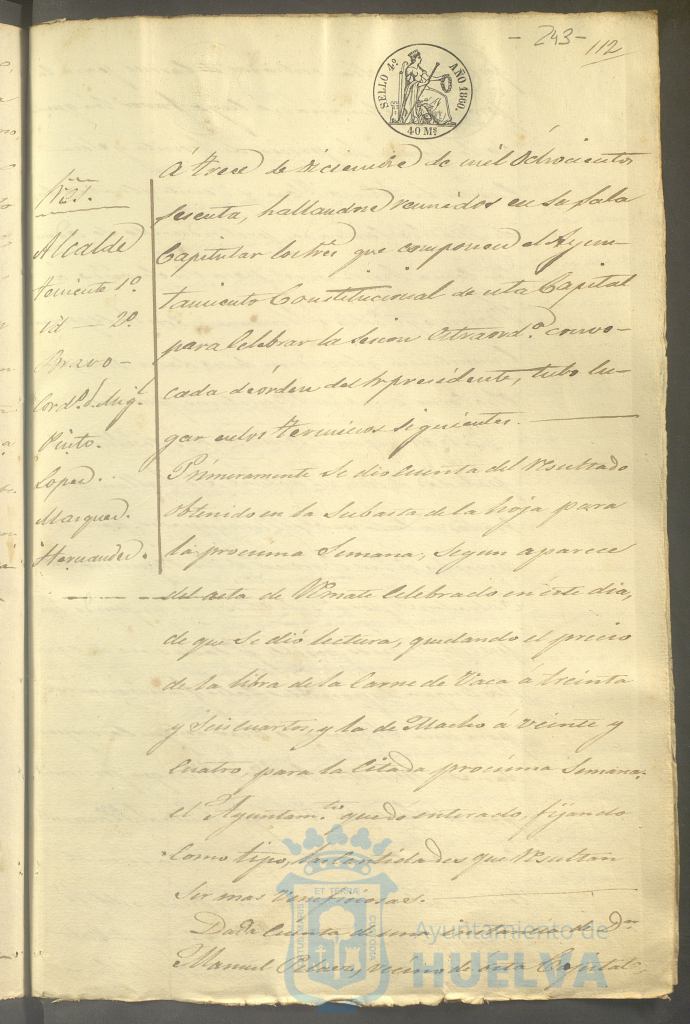 - 243 -
112
SELLO 4º AÑO 1860.
40 Mˢ
Sres.
Alcalde
teniente 1º
id — 2º
Bravo
Cordº d. Migl
Pinto.
Lopez.
Marquez.
Hernandez.
A trece de diciembre de mil ochocientos
sesenta, hallandose reunidos en su sala
Capitular los Sres que componen el Ayun-
tamiento Constitucional de esta Capital
para celebrar la sesion estraordª convo-
cada de órden del Sr presidente, tubo lu-
gar en los terminos siguientes.
Primeramente se dio cuenta del resultado
obtenido en la subasta de la hoja para
la procsima semana, segun aparece
del acta de remate celebrado en este dia,
de que se dió lectura, quedando el precio
de la libra de la Carne de Vaca á treinta
y seis cuartos, y la de Macho á veinte y
cuatro, para la citada procsima semana.
el Ayuntamto quedó enterado, fijando
como tipo, las cantidades que resultan
ser mas beneficiosas.
Dada cuenta de una instancia de Dn
Manuel Pelaez, vecino de esta Capital,
Ayuntamiento de
HUELVA